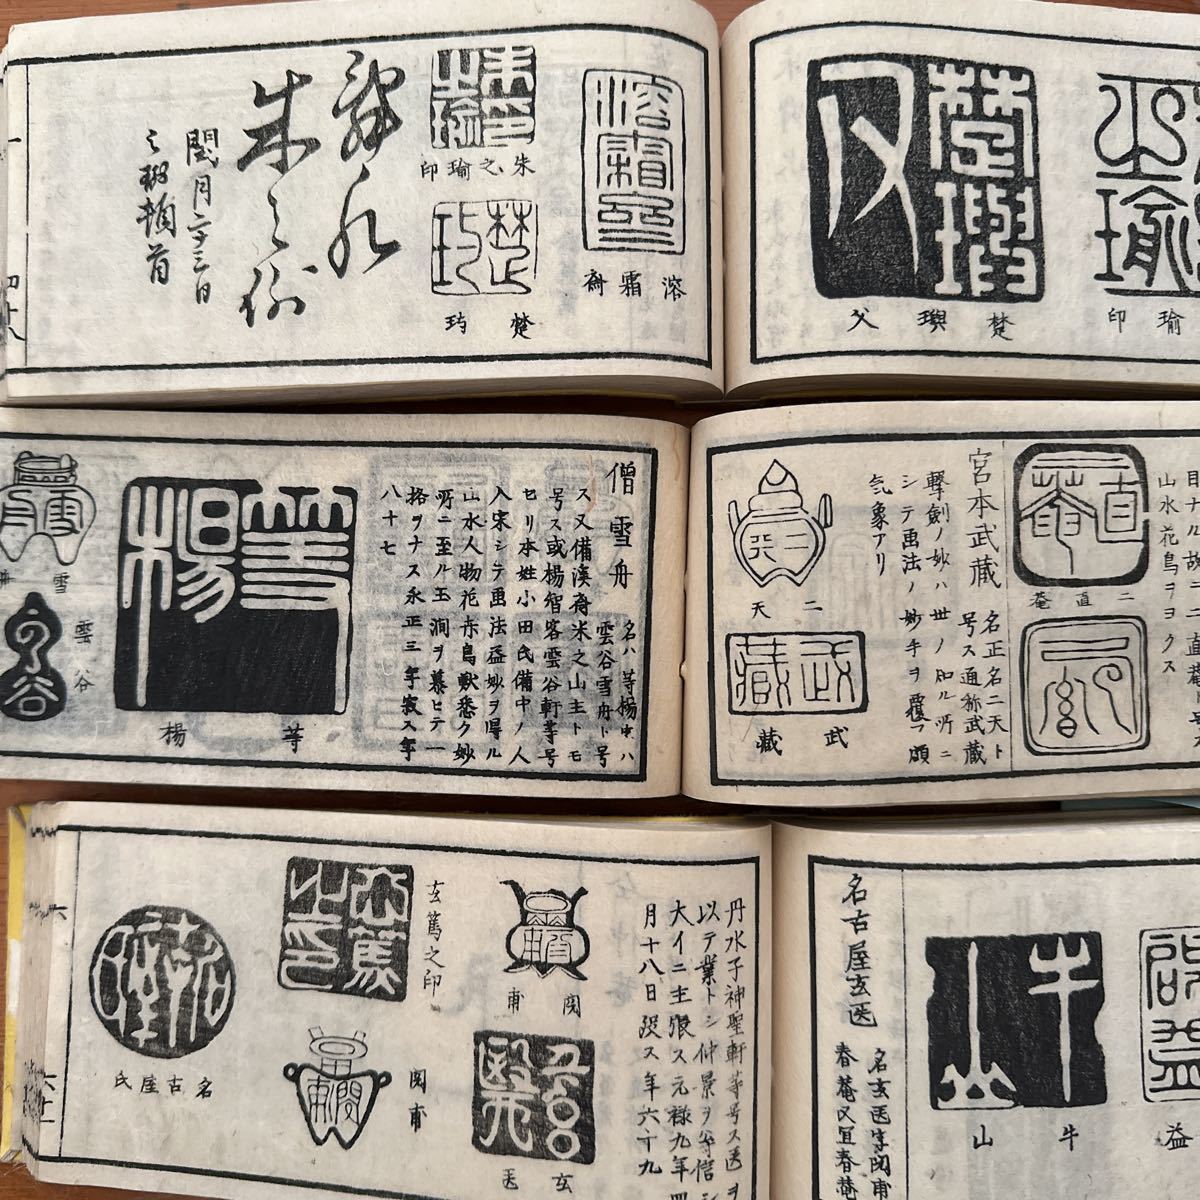 楚璵父
瑜印
溶霜斎
朱之瑜印
楚玙
閏月二十三日
之瑜頓首
山水花鳥ヲヨクス
二直菴
宮本武蔵
名正名二天ト
号ス通称武蔵
撃劍ノ妙ハ世ノ知ル所ニ
シテ画法ノ妙手ヲ覆フ頗
気象アリ
二天
武藏
僧雪舟
名ハ等楊中ハ
雲谷雪舟ト号
ス又備溪斎米之山主トモ
号ス或楊智客雲谷軒等号
セリ本姓小田氏備中ノ人
入宋シテ画法益妙ヲ得ル
山水人物花卉鳥獣悉ク妙
所ニ至ル玉澗ヲ慕ヒテ一
格ヲナス永正三年寂ス年
八十七
等楊
雪舟
雲谷
益
牛山
名古屋玄医
名玄医字閲甫
春菴又宜春菴
丹水子神聖軒等号ス医ヲ
以テ業トシ仲景ヲ尊信シ
大イニ主張ス元禄九年四
月十八日没ス年六十九
閲甫
玄医
玄篤之印
閲甫
名古屋氏